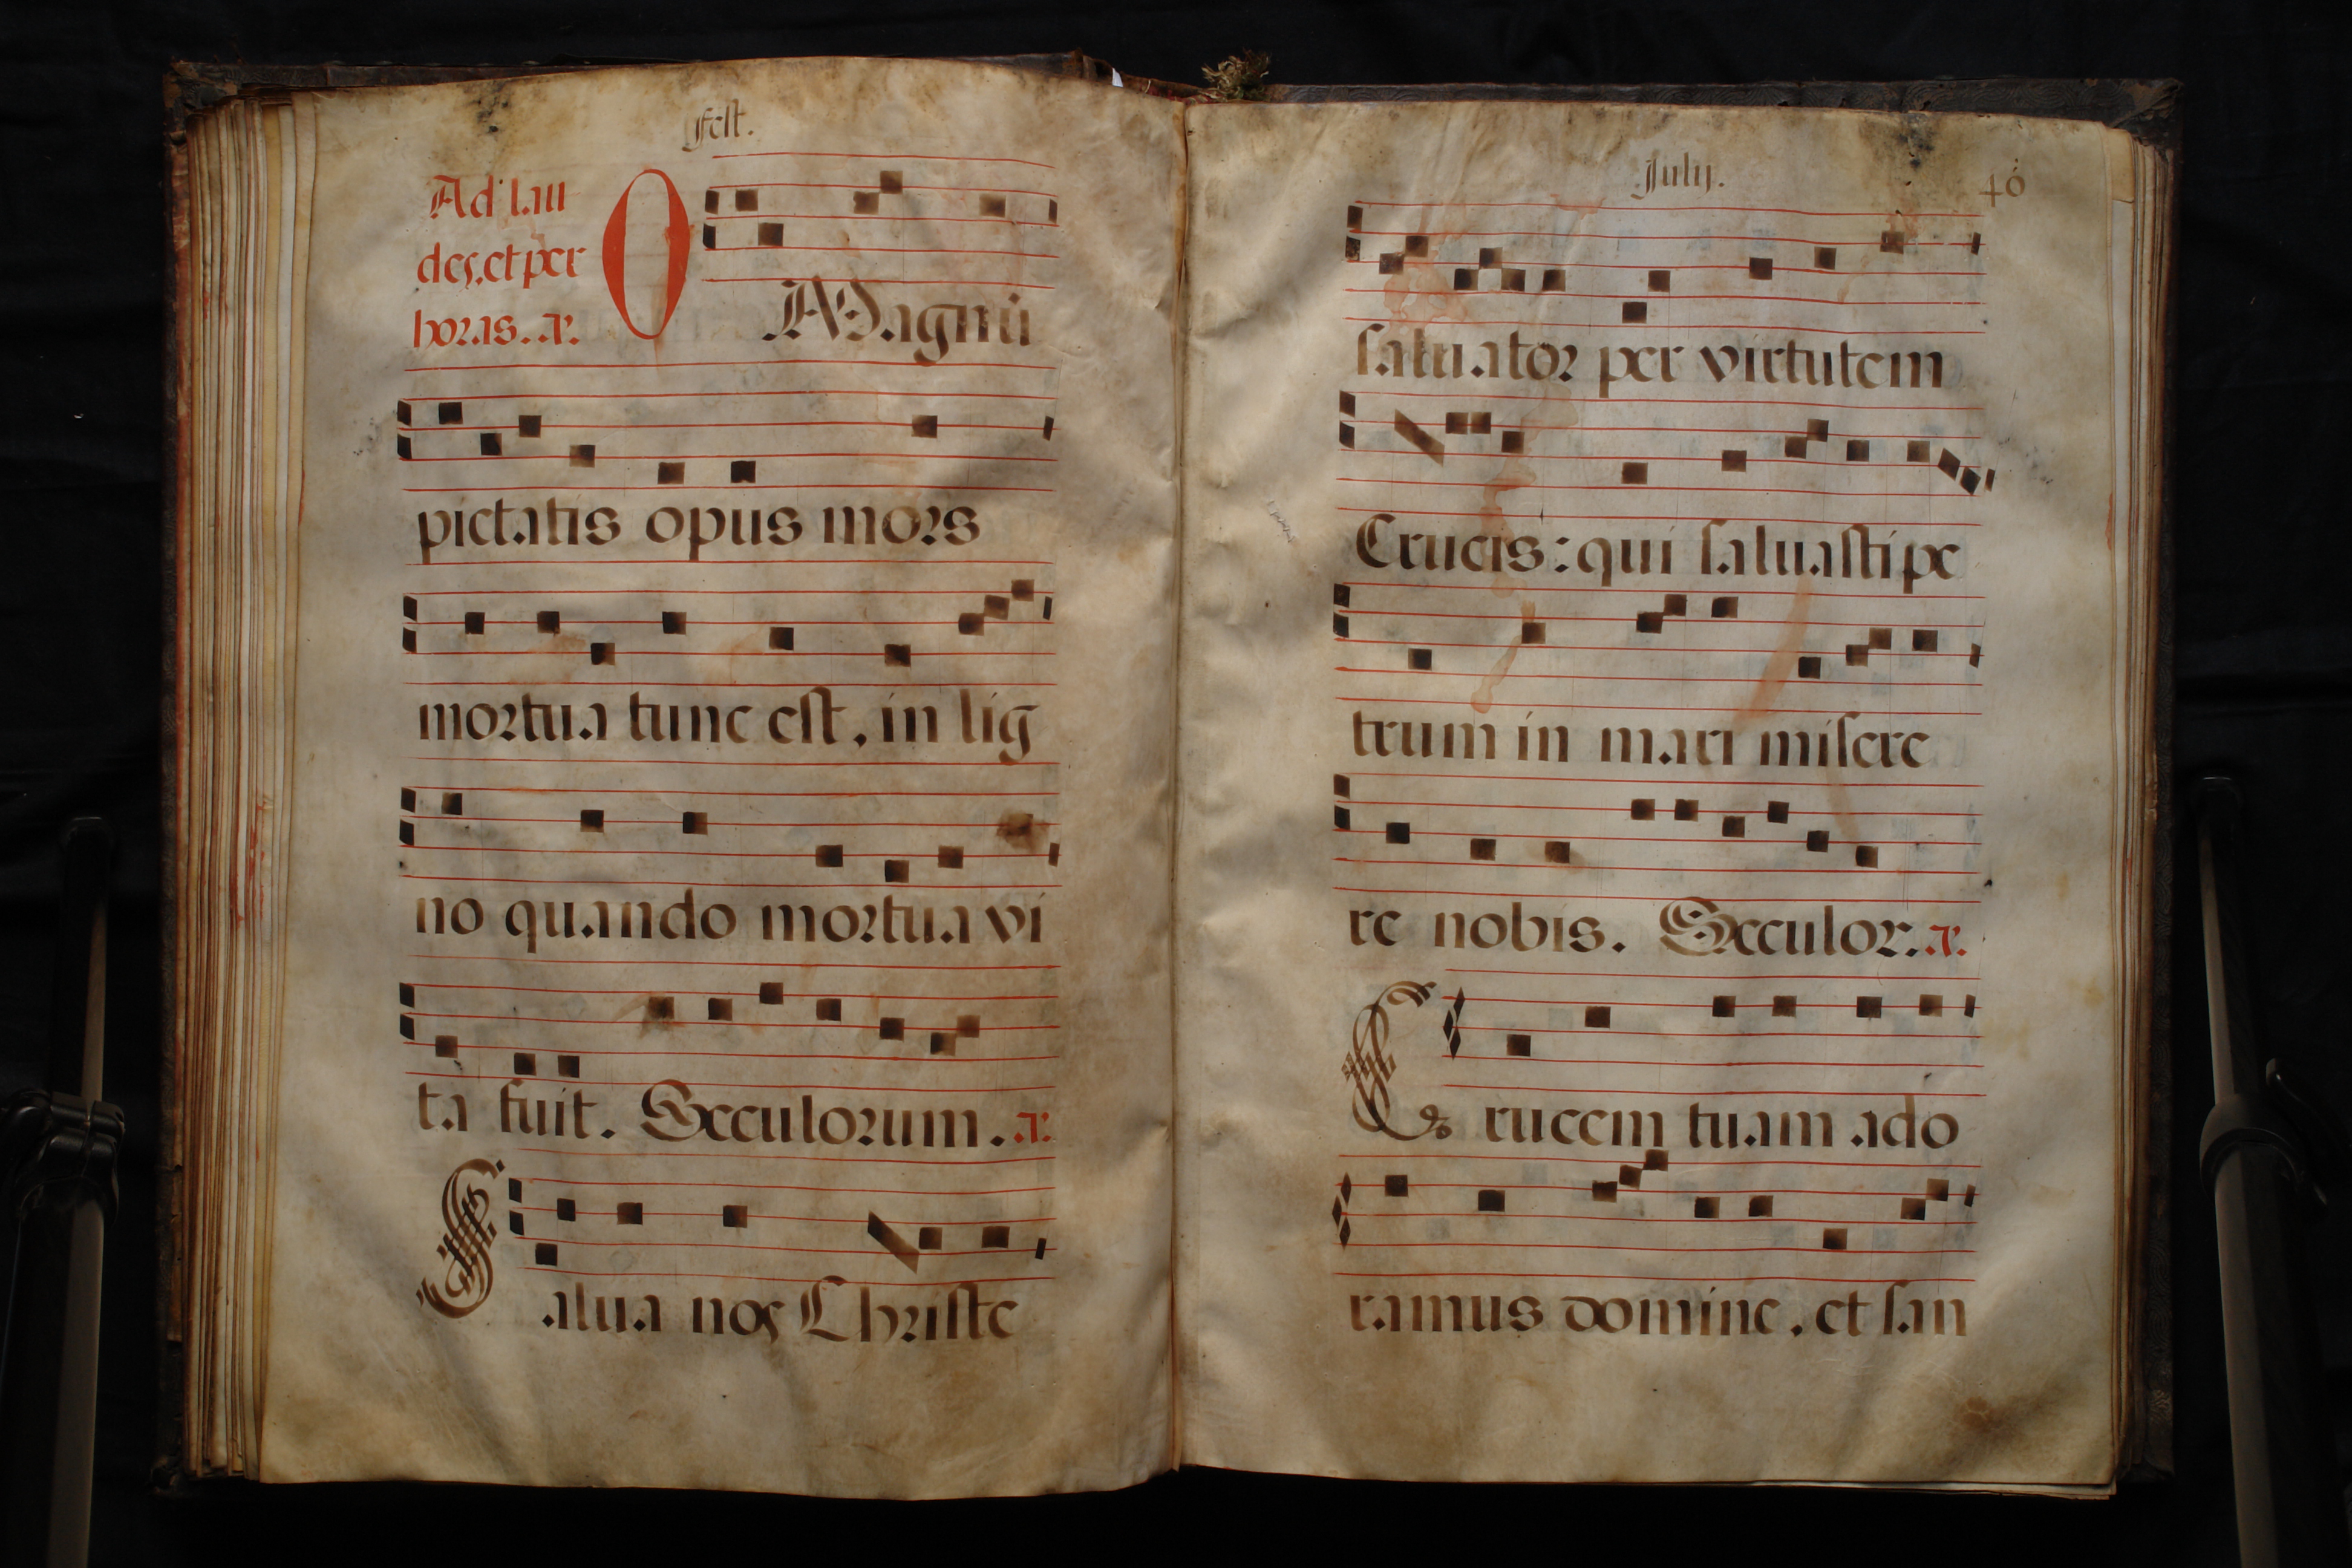 Fest.
Ad lau
des, et per
horas. a.
O Magnũ
pietatis opus mors
mortua tunc est, in lig
no quando mortua vi
ta fuit. Seculorum. a.
Salua nos Christe
July.
46
saluator per virtutem
Crucis: qui saluasti pe
trum in mari misere
re nobis. Seculor. a.
Crucem tuam ado
ramus domine, et san